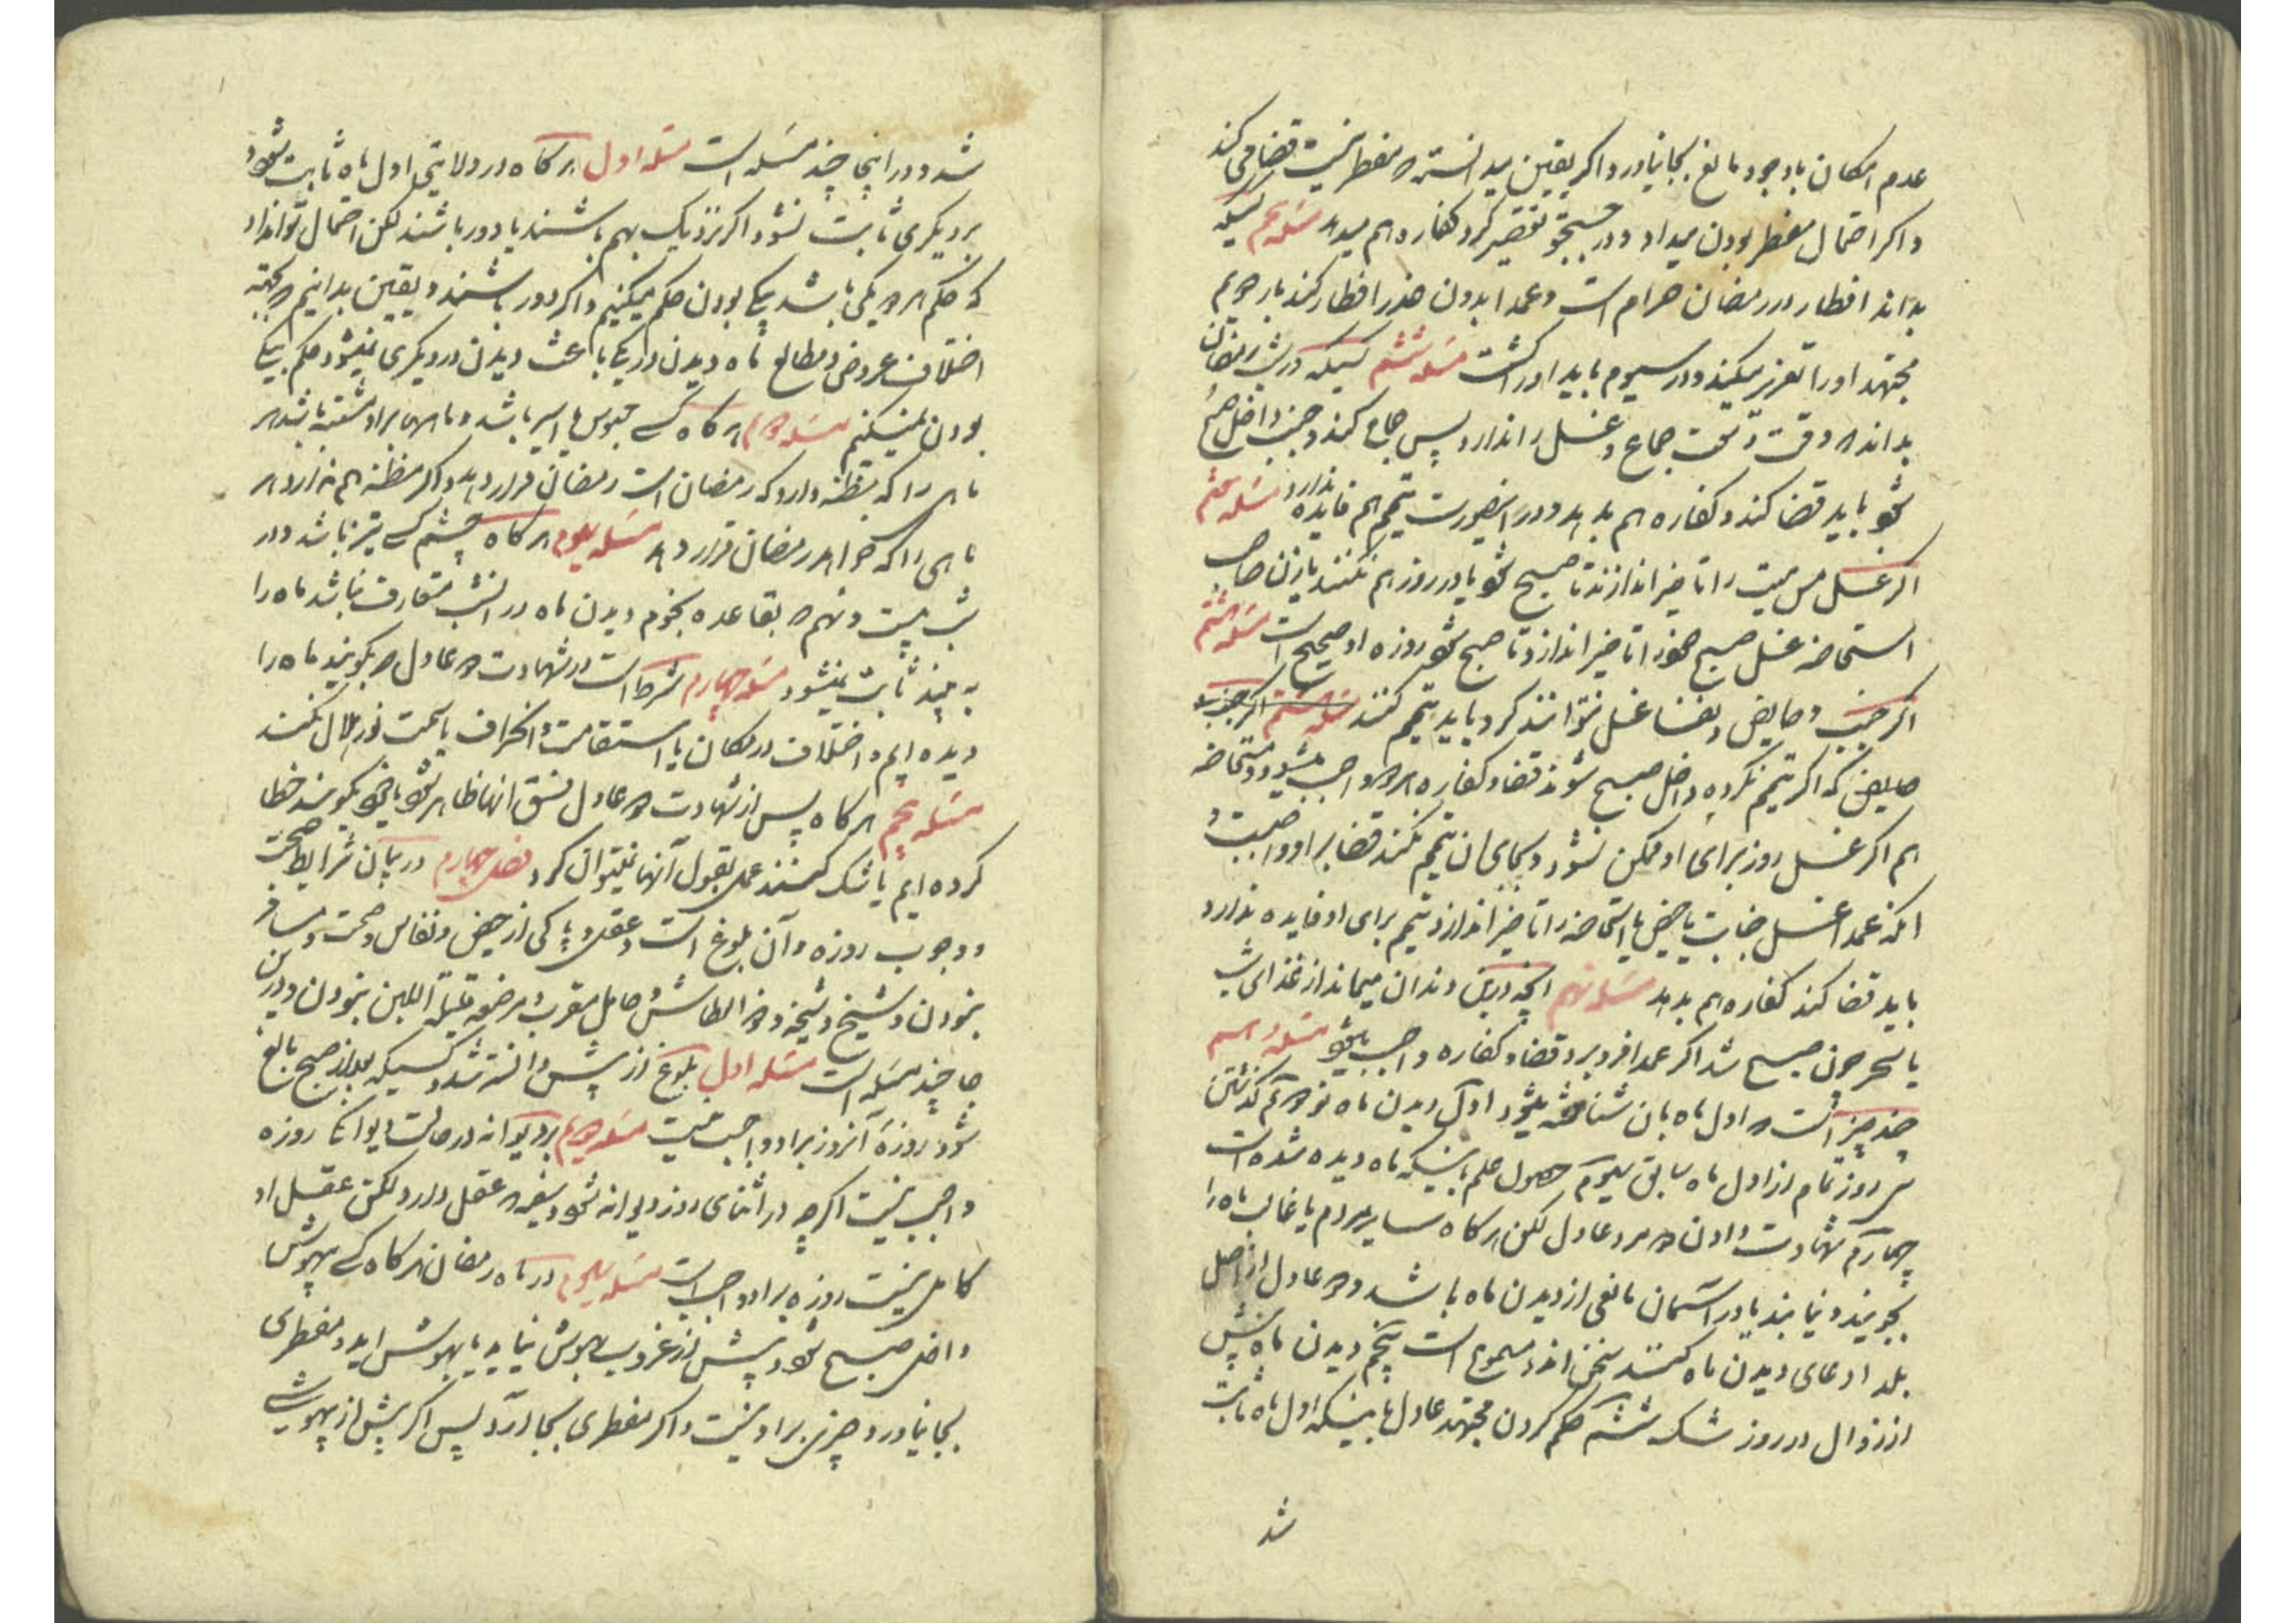 عدم امکان با وجود مانع بجا نیاورد و اکر یقین میدانسته که مفطر نیست قضا می کند
و اکر احتمال مفطر بودن میداد و در جستجو تقصیر کرد کفاره هم میدهد مسئله پنجم کسیکه
بداند افطار در رمضان حرام است و عمدا بدون عذر افطار کند بار دویم
مجتهد او را تعزیر میکند و در سیوم باید او را کشت مسئله ششم کسیکه در شب رمضان
بداند که وقت وسعت جماع و غسل را ندارد پس جماع کند و جنب داخل صبح
شود باید قضا کند و کفاره هم بدهد و در اینصورت تیمم هم فایده ندارد مسئله هفتم
اکر غسل مس میت را تاخیر اندازند تا صبح شود یا در روز هم نکنند یا زن صاحب
استحاضه غسل صبح خود را تاخیر اندازد تا صبح شود روزه او صحیح است مسئله هشتم
اکر جنب و حایض و نفسا غسل نتوانند کرد باید تیمم کنند مسئله هشتم اکر جنب و
حایض که اکر تیمم نکرده داخل صبح شوند قضا و کفاره هر دو واجب میشود و مستحاضه
هم اکر غسل روز برای او ممکن نشود و بجای ان تیمم نکند قضا بر او واجبست و
انکه عمدا غسل جنابت یا حیض یا استحاضه را تاخیر اندازد تیمم برای او فایده ندارد
باید قضا کند کفاره هم بدهد مسئله نهم انچه در بن دندان میماند از غذای شب
یا سحر چون صبح شد اکر عمدا فرو برد قضا و کفاره واجب میشود مسئله دهم
چند چیز است که اول ماه بان شناخته میشود اول دیدن ماه نو دویم کذشتن
سی روز تمام از اول ماه سابق سیوم حصول علم باینکه ماه دیده شده است
چهارم شهادت دادن دو مرد عادل لکن هرکاه سایر مردم یا غالب ماه را
بجویند و نیابند یا در آسمان مانعی از دیدن ماه باشد دو عادل از اهل
بلد ادعای دیدن ماه کنند سخن انها مسموع است پنجم دیدن ماه پیش
از زوال در روز شک ششم حکم کردن مجتهد عادل باینکه اول ماه ثابت
شد
شد و در اینجا چند مسئله است مسئله اول هرکاه در ولایتی اول ماه ثابت شود
بر دیکری ثابت نشود اکر نزدیک بهم باشند یا دور باشند لکن احتمال توان داد
که حکم هر دو یکی باشد بیکی بودن حکم میکنیم و اکر دور باشند و یقین بدانیم که بجهة
اختلاف عروض و مطالع ماه دیدن در یکی باعث دیدن در دیکری نمیشود حکم بیکی
بودن نمیکنیم مسئله دویم هرکاه کسی محبوس یا اسیر باشد و ماهها بر او مشتبه باشد هر
ماهی را که مظنه دارد که رمضان است رمضان قرار دهد و اکر مظنه هم ندارد هر
ماهی را که خواهد رمضان قرار دهد مسئله سیوم هرکاه چشم کسی تیز باشد و در
شب بیست و نهم که بقاعده نجوم دیدن ماه در انشب متعارف نباشد ماه را
به بیند ثابت نمیشود مسئله چهارم شرط است در شهادت دو عادل که بکویند ماه را
دیده ایم و اختلاف در مکان یا استقامت و انحراف یا سمت نور هلال نکنند
مسئله پنجم هرکاه پس از شهادت دو عادل فسق انها ظاهر شود یا خود بکویند خطا
کرده ایم یا شک کنند عمل بقول آنها نمیتوان کرد فصل چهارم در بیان شرایط صحت
و وجوب روزه و آن بلوغ است و عقل و پاکی از حیض و نفاس و صحت و مسافر
نبودن و شیخ و شیخه و ذو العطاش و حامل مقرب و مرضعه قلیلة اللبن نبودن و در این
جا چند مسئله است مسئله اول بلوغ از پیش دانسته شد و کسیکه بعد از صبح بالغ
شود روزه آنروز بر او واجب نیست مسئله دویم بر دیوانه در حالت دیوانکی روزه
واجب نیست اکر چه در اثنای روز دیوانه شود و سفیه که عقل دارد لکن عقل او
کامل نیست روزه بر او واجب است مسئله سیوم در ماه رمضان هرکاه کسی بیهوش
داخل صبح شود و پیش از غروب بهوش نیاید یا بهوش اید و مفطری
بجا نیاورد چیزی بر او نیست و اکر مفطری بجا آورد پس اکر پیش از بیهوشی